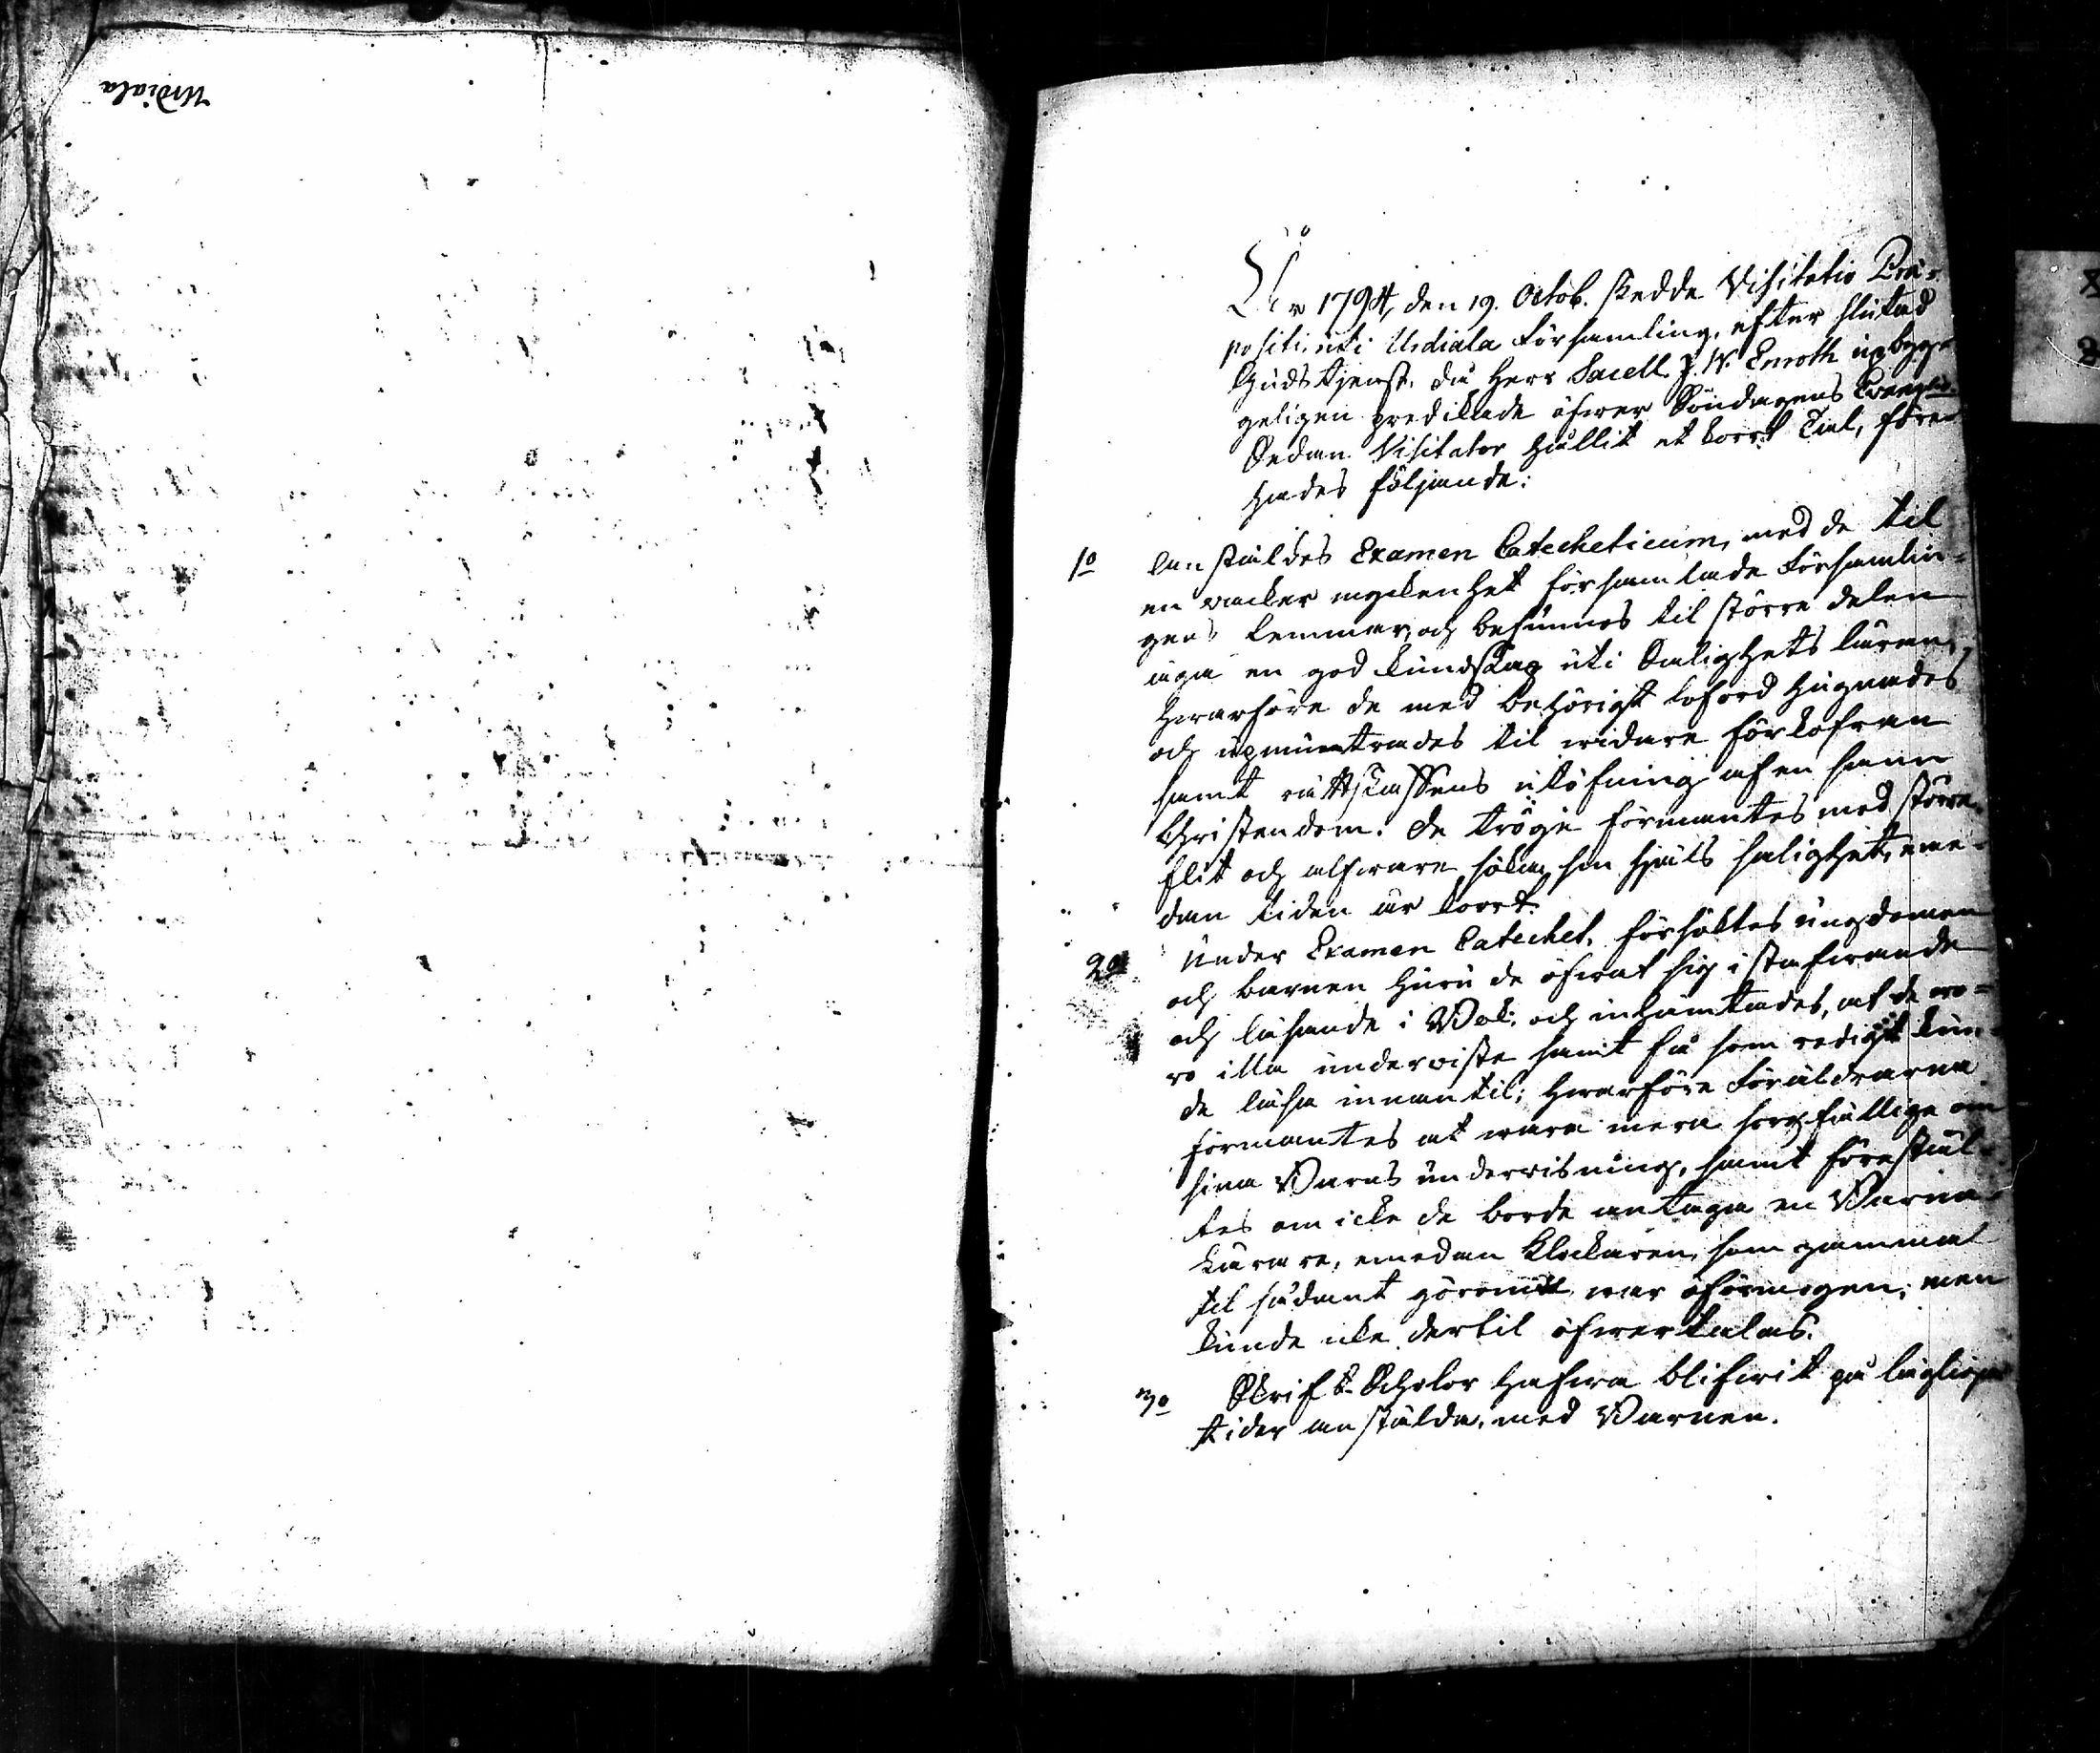 Urdiala
År 1794, den 19. Octob. skedde Visitatio Præ-
positi uti Urdiala Församling, efter slutad
Gudstjenst, då Herr Sacell. J. W. Enroth upbyg-
geligen predikade öfwer Söndagens Evangelio.
Sedan Visitator hållit et kort Tal, före-
hades följande:
1o anstäldes Examen Catecheticum, med de til
en wacker myckenhet församlade Församlin-
gens lemmar, och befunnos til större delen
äga en god kundskap uti Salighets läran,
hwarföre de med behörigt loford hugnades
och upmuntrades til widare förkofran
samt rättskaffens utöfning af en sann
Christendom. De tröge förmantes med större
flit och alfware söka sin själs salighet, eme-
dan tiden är kort.
2o Under Examen Catechet. försöktes ungdomen
och barnen huru de öfwat sig i stafwande
och läsande i Bok. och inhämtades, at de wo-
ro illa underviste samt få som redigt kun-
de läsa innantil; hwarföre Föräldrarna
förmantes at wara mera sorgfällige om
sina Barns undervisning, samt förestäl-
tes om icke de borde antaga en Barna-
lärare, emedan Klockaren, som gammal
til sådant göromål war oförmogen; men
kunde icke dertil öfwertalas.
3o Skrift-Scholor hafwa blifwit på lägliga
tider anstälda, med Barnen.